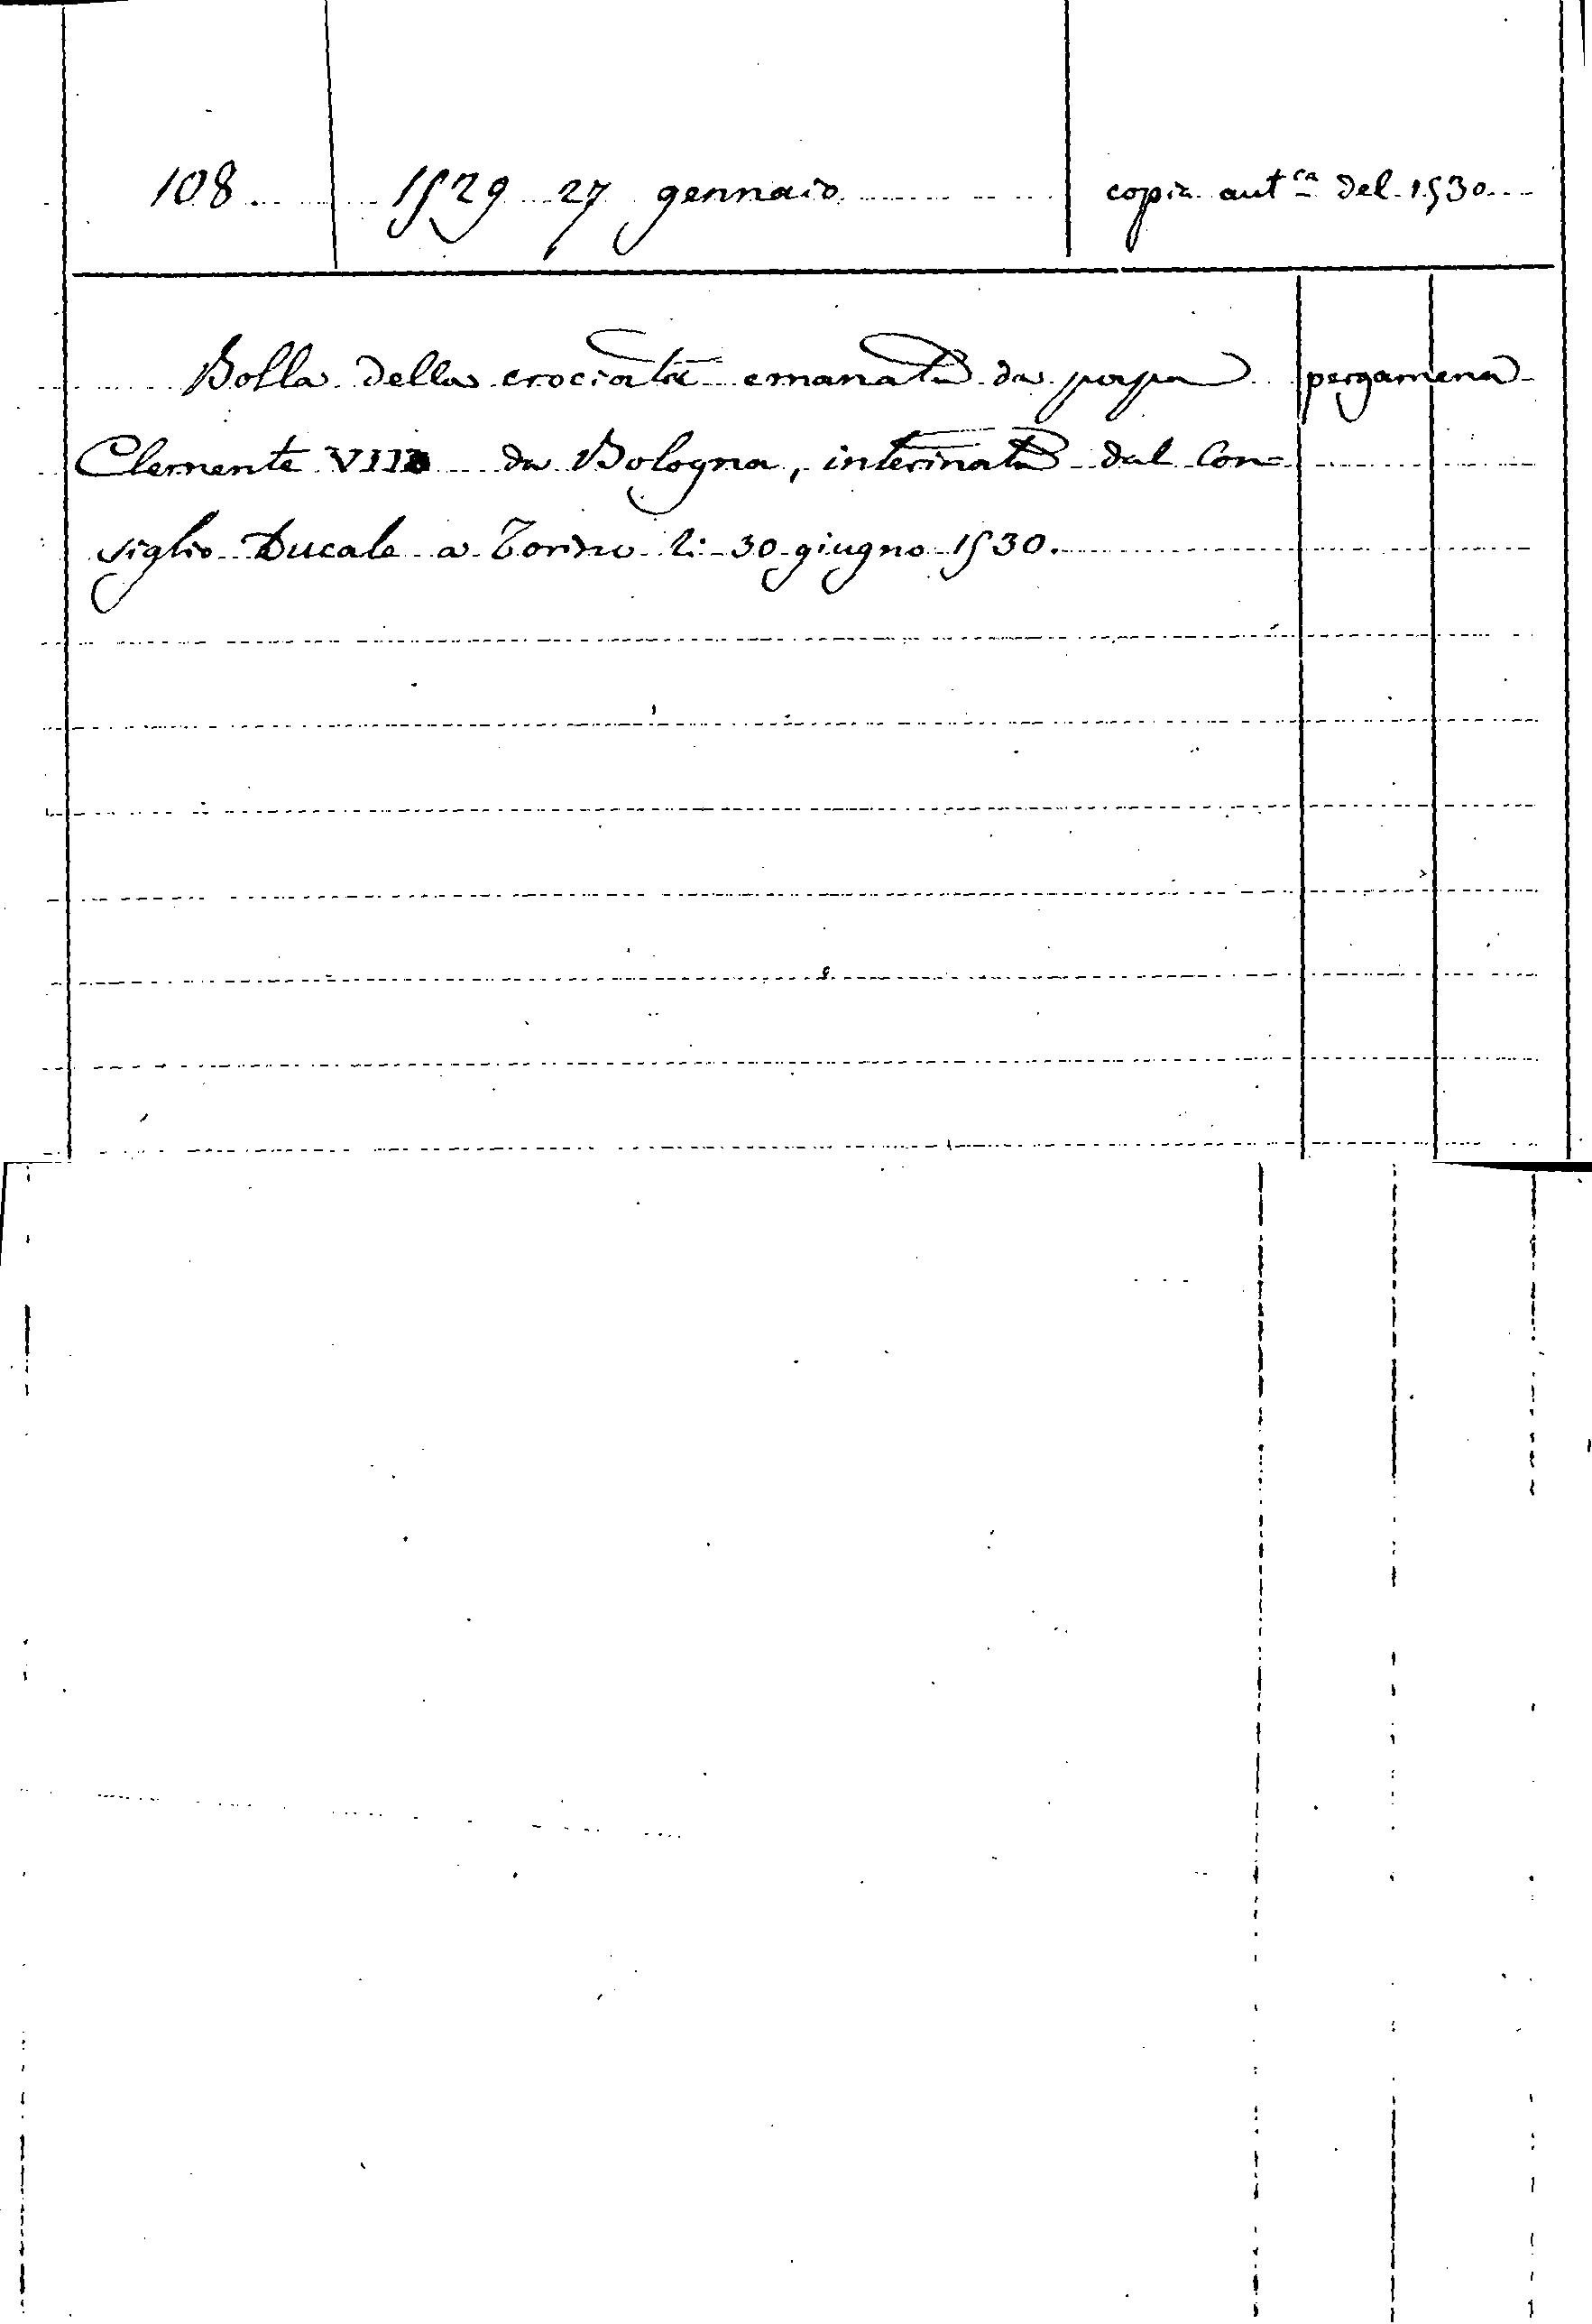 108. 1529 27 gennaio copia aut.ca del 1530
Bolla della crociata emanata da papa pergamena
Clemente VII da Bologna, interinata dal Con=
siglio Ducale a Torino li 30 giugno 1530.